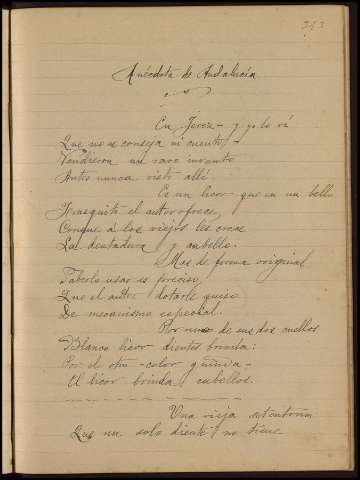 343
Anécdota de Andalucía
En Jerez - y yo lo vi
Que no es conseja ni cuento -
Vendieron un raro invento
Antes nunca visto allí.
Es un licor que en un bello
Frasquito el autor ofrece,
Conque á los viejos les crece
La dentadura y cabello.
Mas de forma original
Saberlo usar es preciso,
Que el autor dotarle quiso
De mecanismo especial.
Por uno de sus dos cuellos
Blanco licor dientes brinda:
Por el otro - color guinda -
El licor brinda cabellos.
Una vieja
Que un solo diente no tiene